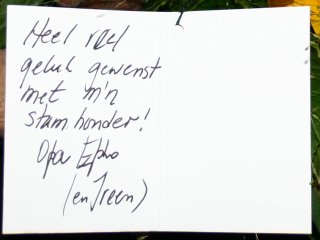 Heel veel
geluk gewenst
met m'n
stamhouder!
Opa
(en Ireen)